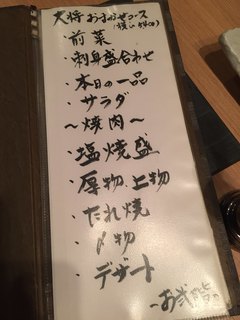 大将 おまかせコース
・前菜
・刺身盛合わせ
・本日の一品
・サラダ
〜焼肉〜
・塩焼盛
・厚物上物
・たれ焼
・〆物
・デザート